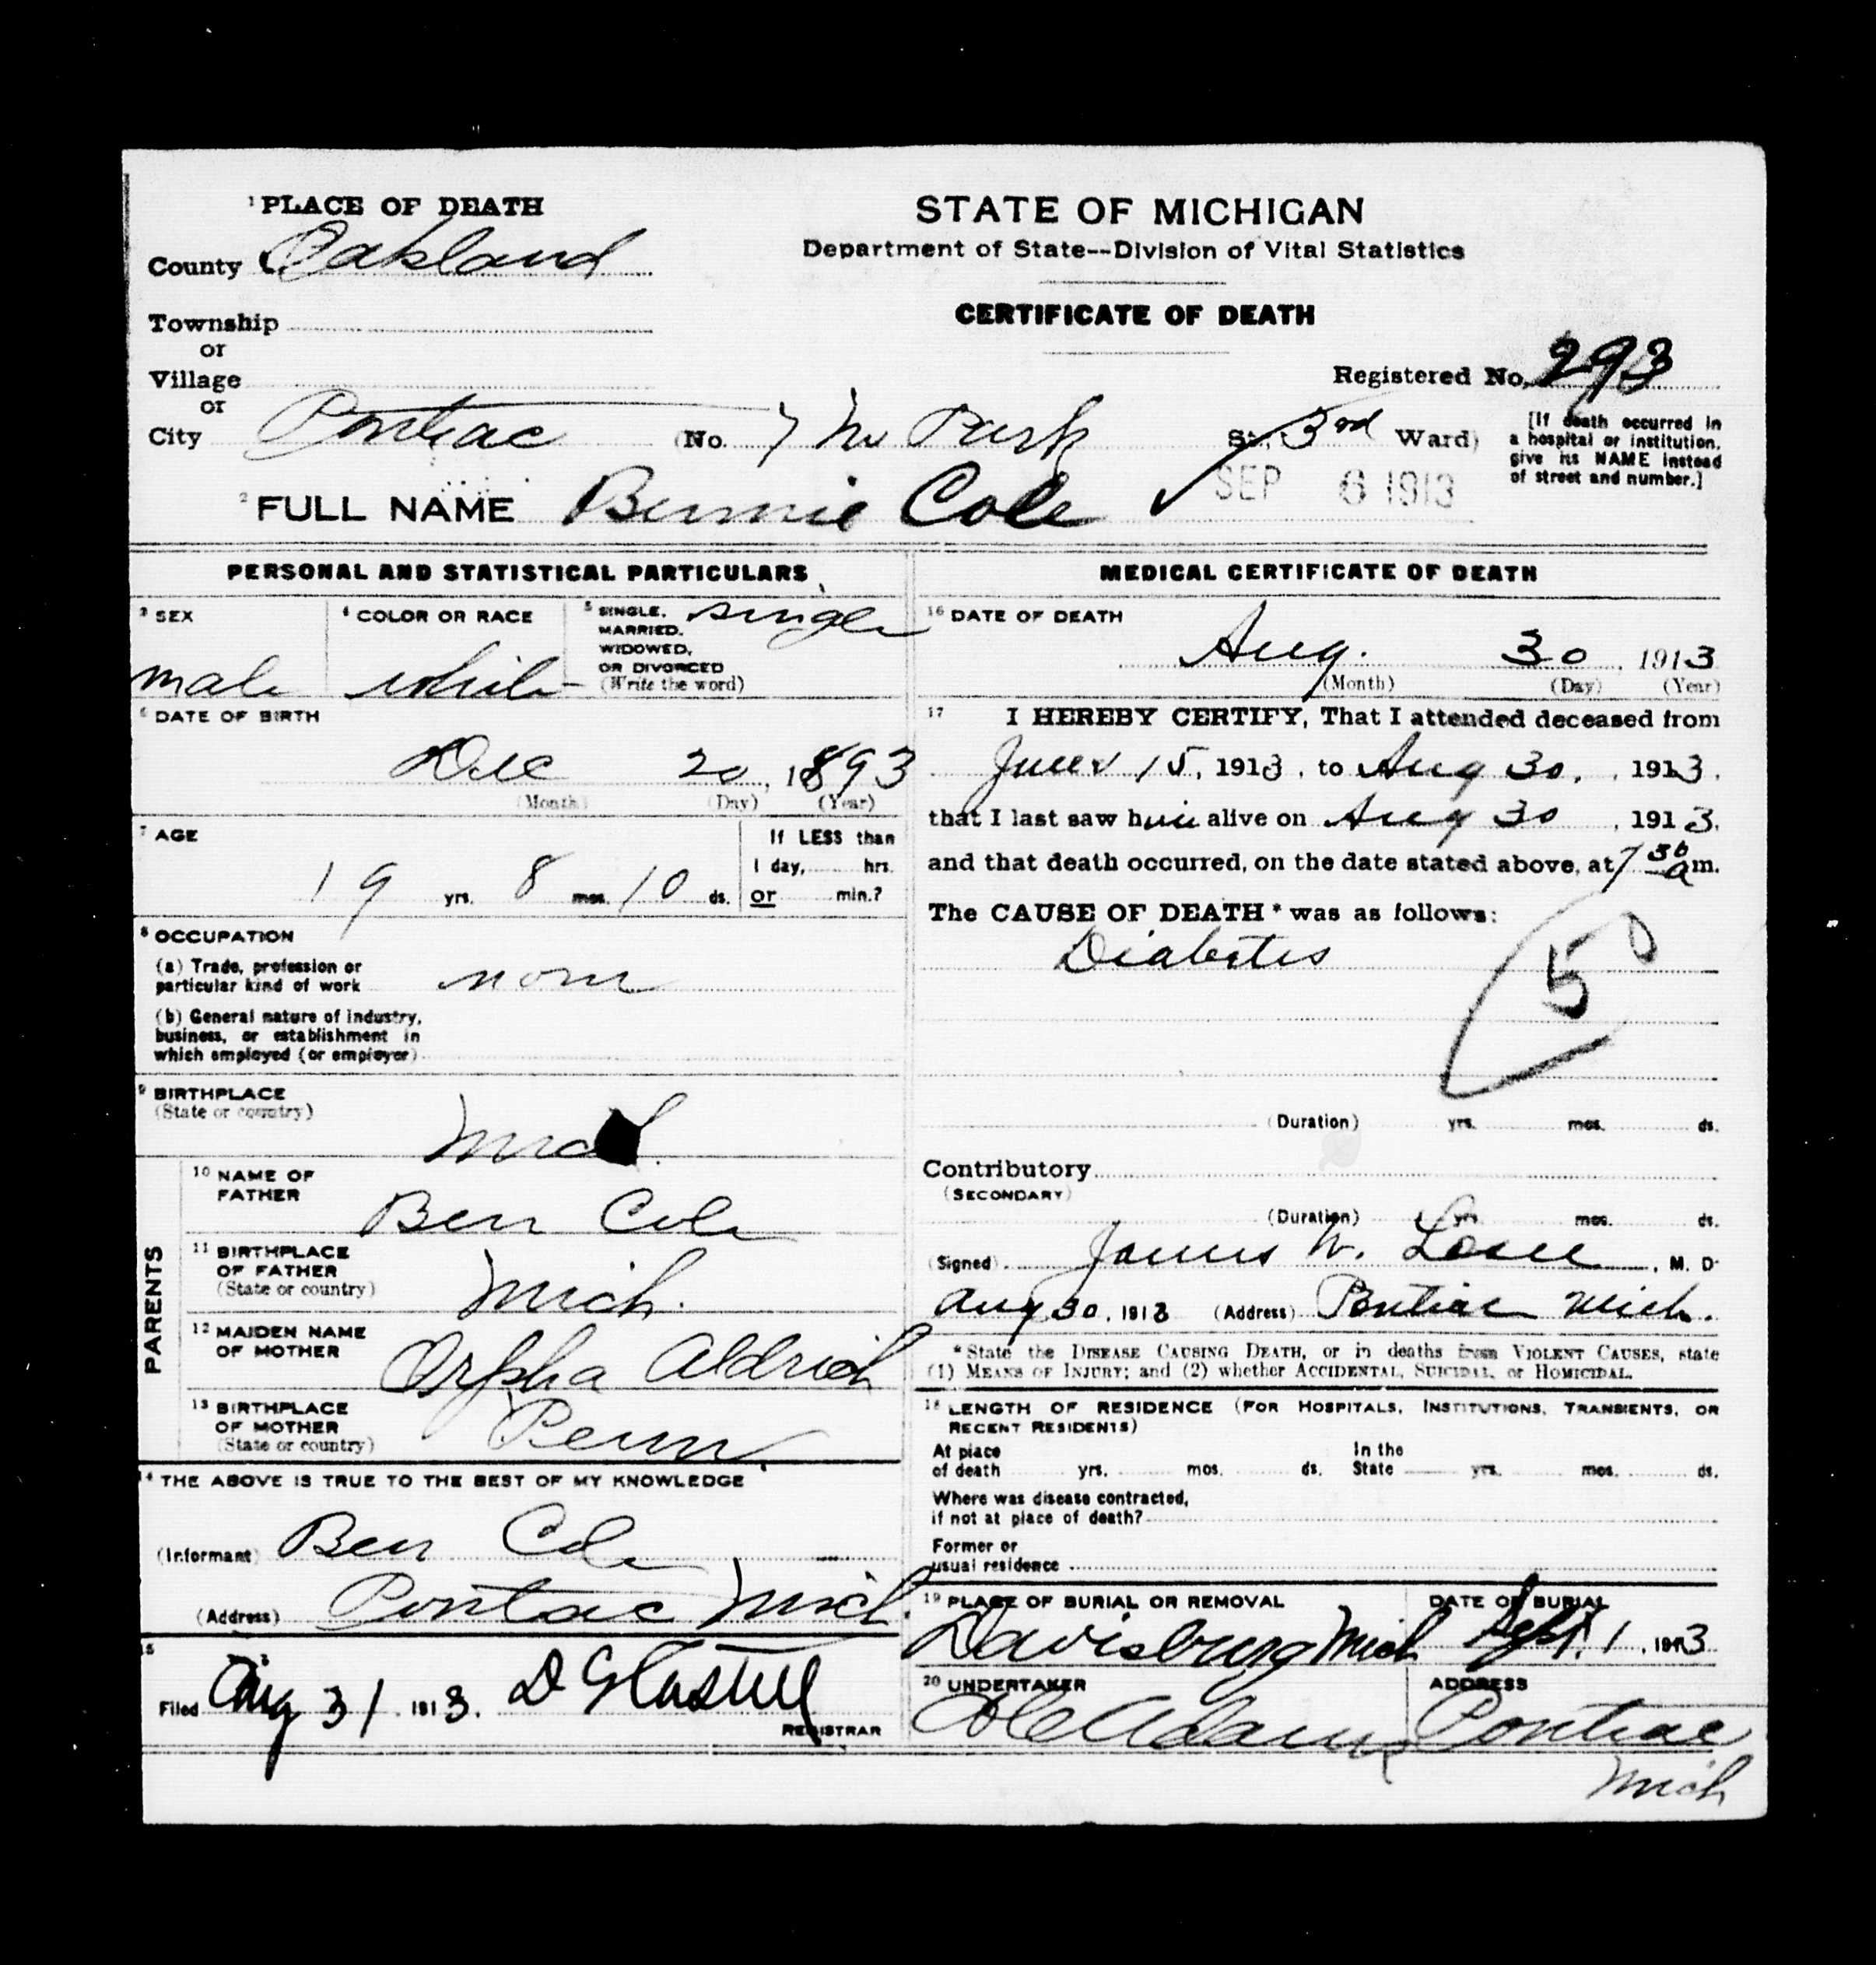 1 PLACE OF DEATH
County Oakland
Township
or
Village
or
City Pontiac (No. 7 Park St., 3rd Ward)
STATE OF MICHIGAN
Department of State--Division of Vital Statistics
CERTIFICATE OF DEATH
Registered No. 293
[If death occurred in
a hospital or institution,
give its NAME instead
of street and number.]
SEP 6 1913
2 FULL NAME Bennie Cole
PERSONAL AND STATISTICAL PARTICULARS
3 SEX
male
4 COLOR OR RACE
white
5 SINGLE, single
MARRIED,
WIDOWED,
OR DIVORCED
(Write the word)
6 DATE OF BIRTH
Dec 20, 1893
(Month) (Day) (Year)
7 AGE
19 yrs. 8 mos. 10 ds.
If LESS than
1 day, hrs.
or min.?
8 OCCUPATION
(a) Trade, profession or
particular kind of work none
(b) General nature of industry,
business, or establishment in
which employed (or employer)
9 BIRTHPLACE
(State or country)
Mich.
PARENTS
10 NAME OF
FATHER
Ben Cole
11 BIRTHPLACE
OF FATHER
(State or country)
Mich.
12 MAIDEN NAME
OF MOTHER
Orpha Aldrich
13 BIRTHPLACE
OF MOTHER
(State or country)
Penn.
14 THE ABOVE IS TRUE TO THE BEST OF MY KNOWLEDGE
(Informant) Ben Cole
(Address) Pontiac Mich.
15
Filed Aug 31, 1913.
REGISTRAR
MEDICAL CERTIFICATE OF DEATH
16 DATE OF DEATH
Aug. 30, 1913
(Month) (Day) (Year)
17 I HEREBY CERTIFY, That I attended deceased from
June 15, 1913, to Aug 30, , 1913,
that I last saw him alive on Aug 30 , 1913,
and that death occurred, on the date stated above, at 7 30 a m.
The CAUSE OF DEATH* was as follows:
Diabetes
50
(Duration) yrs. mos. ds.
Contributory
(SECONDARY)
(Duration) yrs. mos. ds.
(Signed) James W. Losee, M. D.
Aug 30, 1913 (Address) Pontiac Mich.
*State the DISEASE CAUSING DEATH, or in deaths from VIOLENT CAUSES, state
(1) MEANS OF INJURY; and (2) whether ACCIDENTAL, SUICIDAL, or HOMICIDAL.
18 LENGTH OF RESIDENCE (FOR HOSPITALS, INSTITUTIONS, TRANSIENTS, OR
RECENT RESIDENTS)
At place
of death yrs. mos. ds. In the
State yrs. mos. ds.
Where was disease contracted,
if not at place of death?
Former or
usual residence
19 PLACE OF BURIAL OR REMOVAL
Davisburg Mich
DATE OF BURIAL
Sept. 1, 1913
20 UNDERTAKER
Adams
ADDRESS
Pontiac
Mich